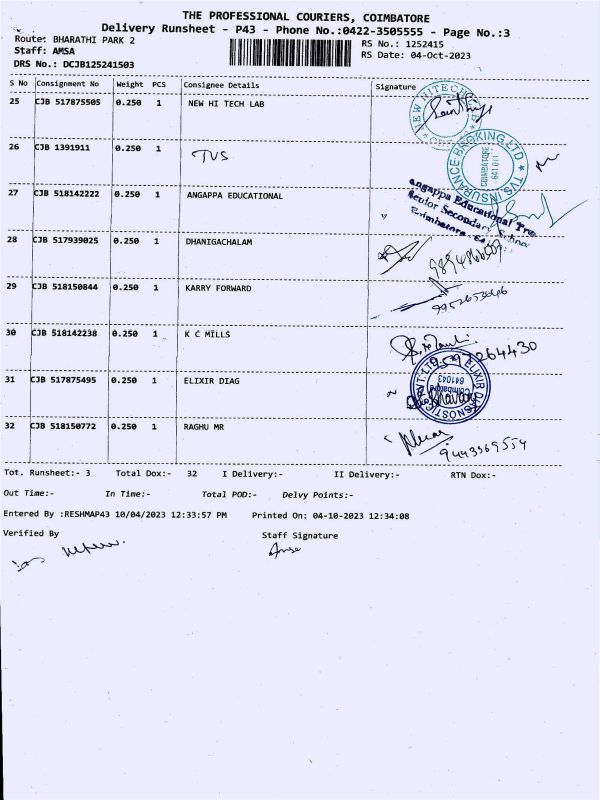 THE PROFESSIONAL COURIERS, COIMBATORE
Delivery Runsheet - P43 - Phone No.:0422-3505555 - Page No.:3
Route: BHARATHI PARK 2
RS No.: 1252415
Staff: AMSA
RS Date: 04-Oct-2023
DRS No.: DCJB125241503
S No Consignment No Weight PCS Consignee Details Signature
25 CJB 517875505 0.250 1 NEW HI TECH LAB
26 CJB 1391911 0.250 1 TVS
TVS INSURANCE BROKING LTD
COIMBATORE
641 011
27 CJB 518142222 0.250 1 ANGAPPA EDUCATIONAL
Angappa Educational Tru
Senior Secondary School
Coimbatore
28 CJB 517939025 0.250 1 DHANIGACHALAM
29 CJB 518150844 0.250 1 KARRY FORWARD
9952653046
30 CJB 518142238 0.250 1 K C MILLS
31 CJB 517875495 0.250 1 ELIXIR DIAG
ELIXIR DIAGNOSTIC
Coimbatore
641043
32 CJB 518150772 0.250 1 RAGHU MR
9443369554
Tot. Runsheet:- 3 Total Dox:- 32 I Delivery:- II Delivery:- RTN Dox:-
Out Time:- In Time:- Total POD:- Delvy Points:-
Entered By :RESHMAP43 10/04/2023 12:33:57 PM Printed On: 04-10-2023 12:34:08
Verified By Staff Signature